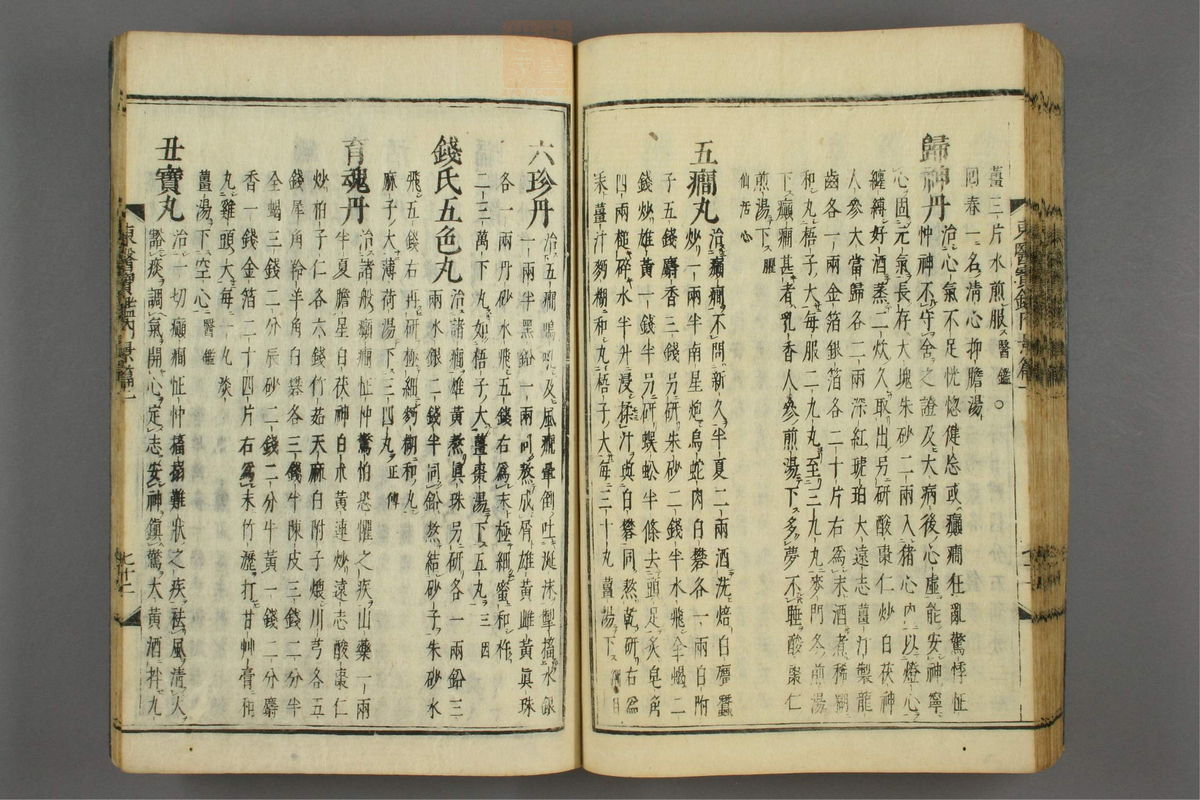 薑三片水煎服醫鑑○
回春一名清心抑膽湯
歸神丹治心氣不足恍惚健忘或癲癇狂亂驚悸怔
忡神不守舍之證及大病後心虛能安神寧
心固元氣長存大塊朱砂二兩入猪心內以燈心
纏縛好酒蒸二炊久取出另研酸棗仁炒白茯神
人參大當歸各二兩深紅琥珀大遠志薑汁製龍
齒各一兩金箔銀箔各二十片右爲末酒煮稀糊
和丸梧子大每服二九丸至三九丸麥門冬煎湯
下癲癇甚者乳香人參煎湯下多夢不睡酸棗仁
煎湯下臞
仙活心
五癎丸治癲癎不問新久半夏二兩酒洗焙白殭蠶
炒一兩半南星炮烏蛇肉白礬各一兩白附
子五錢麝香三錢另研朱砂二錢半水飛全蝎二
錢炒雄黃一錢半另研蜈蚣半條去頭足炙皂角
四兩槌碎水半升浸揉汁與白礬同熬乾研右爲
末薑汁麪糊和丸梧子大每三十丸薑湯下
東醫寶鑑內景篇一
六珍丹治五癎鳴及風癎暈倒吐涎沫掣搐水銀
一兩半黑鉛一兩同熬成屑雄黃雌黃眞珠
各一兩丹砂水飛五錢右爲末極細蜜和杵
二三萬下丸如梧子大薑棗湯下五丸三因
錢氏五色丸治諸癎雄黃熬眞珠另研各一兩鉛三
兩水銀二錢半同鉛熬結砂子朱砂水
飛五錢右再研極細麪糊和丸
麻子大薄荷湯下三四丸正傳
育魂丹治諸般癲癇怔忡驚怕恐懼之疾山藥一兩
半夏膽星白茯神白朮黃連炒遠志酸棗仁
炒柏子仁各六錢竹茹天麻白附子煨川芎各五
錢犀角羚羊角白礬各三錢半陳皮三錢
全蝎三錢二分辰砂二錢二分牛黃一錢二分麝
香一錢金箔二十四片右爲末竹瀝打甘艸膏和
丸雞頭大每一丸淡
薑湯下空心醫鑑
丑寶丸治一切癲癇怔忡搐搦難狀之疾祛風清火
豁痰調氣開心定志安神鎭驚大黃酒拌九
東醫寶鑑內景篇一
七十二